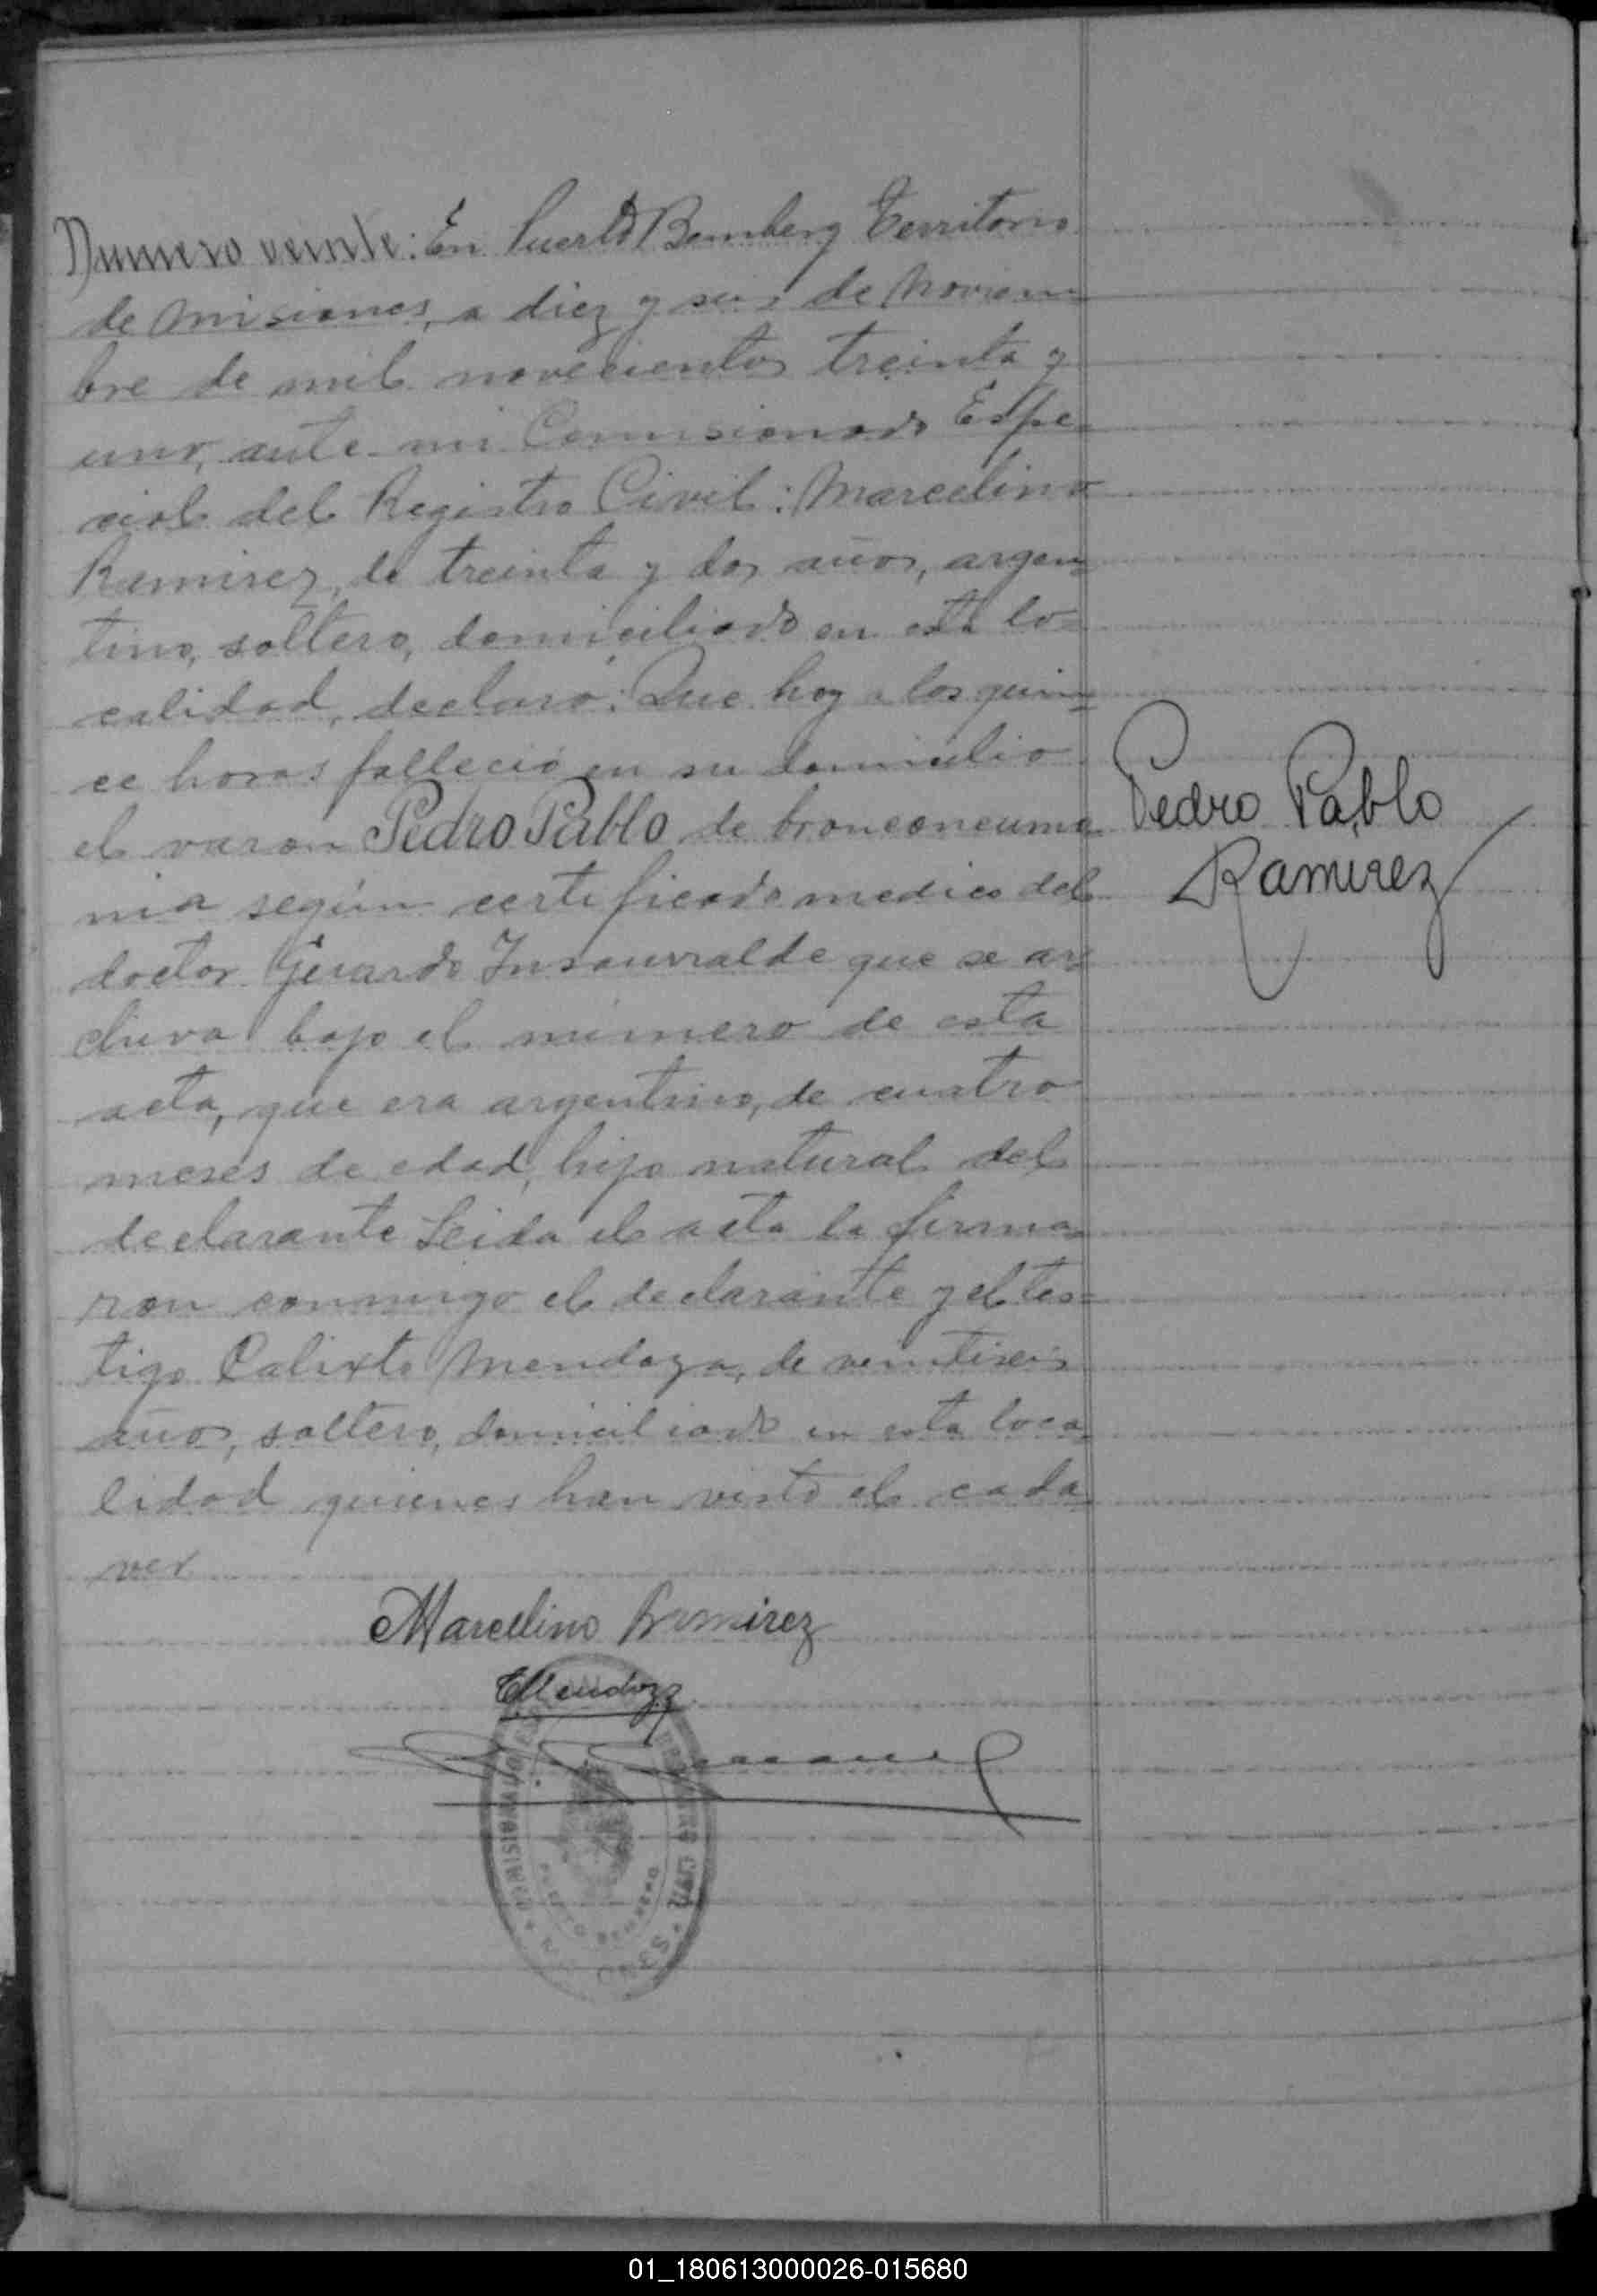 Numero veinte: En Puerto Bemberg Territorio
de Misiones, a diez y seis de Noviem=
bre de mil novecientos treinta y
uno, ante mi Comisionado Espe=
cial del Registro Civil: Marcelino
Ramirez, de treinta y dos años, argen=
tino, soltero, domiciliado en esta lo=
calidad, declaró: Que hoy a las quin=
ce horas falleció en su domicilio
el varon Pedro Pablo de bronconeumo
nia según certificado medico del
doctor Gerardo Insaurralde que se ar
chiva bajo el número de esta
acta, que era argentino, de cuatro
meses de edad, hijo natural del
declarante Leida el acta la firma=
ron conmigo el declarante y el tes=
tigo Calixto Mendoza, de veintiseis
años, soltero, domiciliado en esta loca
lidad quienes han visto el cada
ver
Pedro Pablo
Ramirez
Marcelino Ramirez
CMendoza
REGISTRO CIVIL
PUERTO BEMBERG
01_180613000026-015680